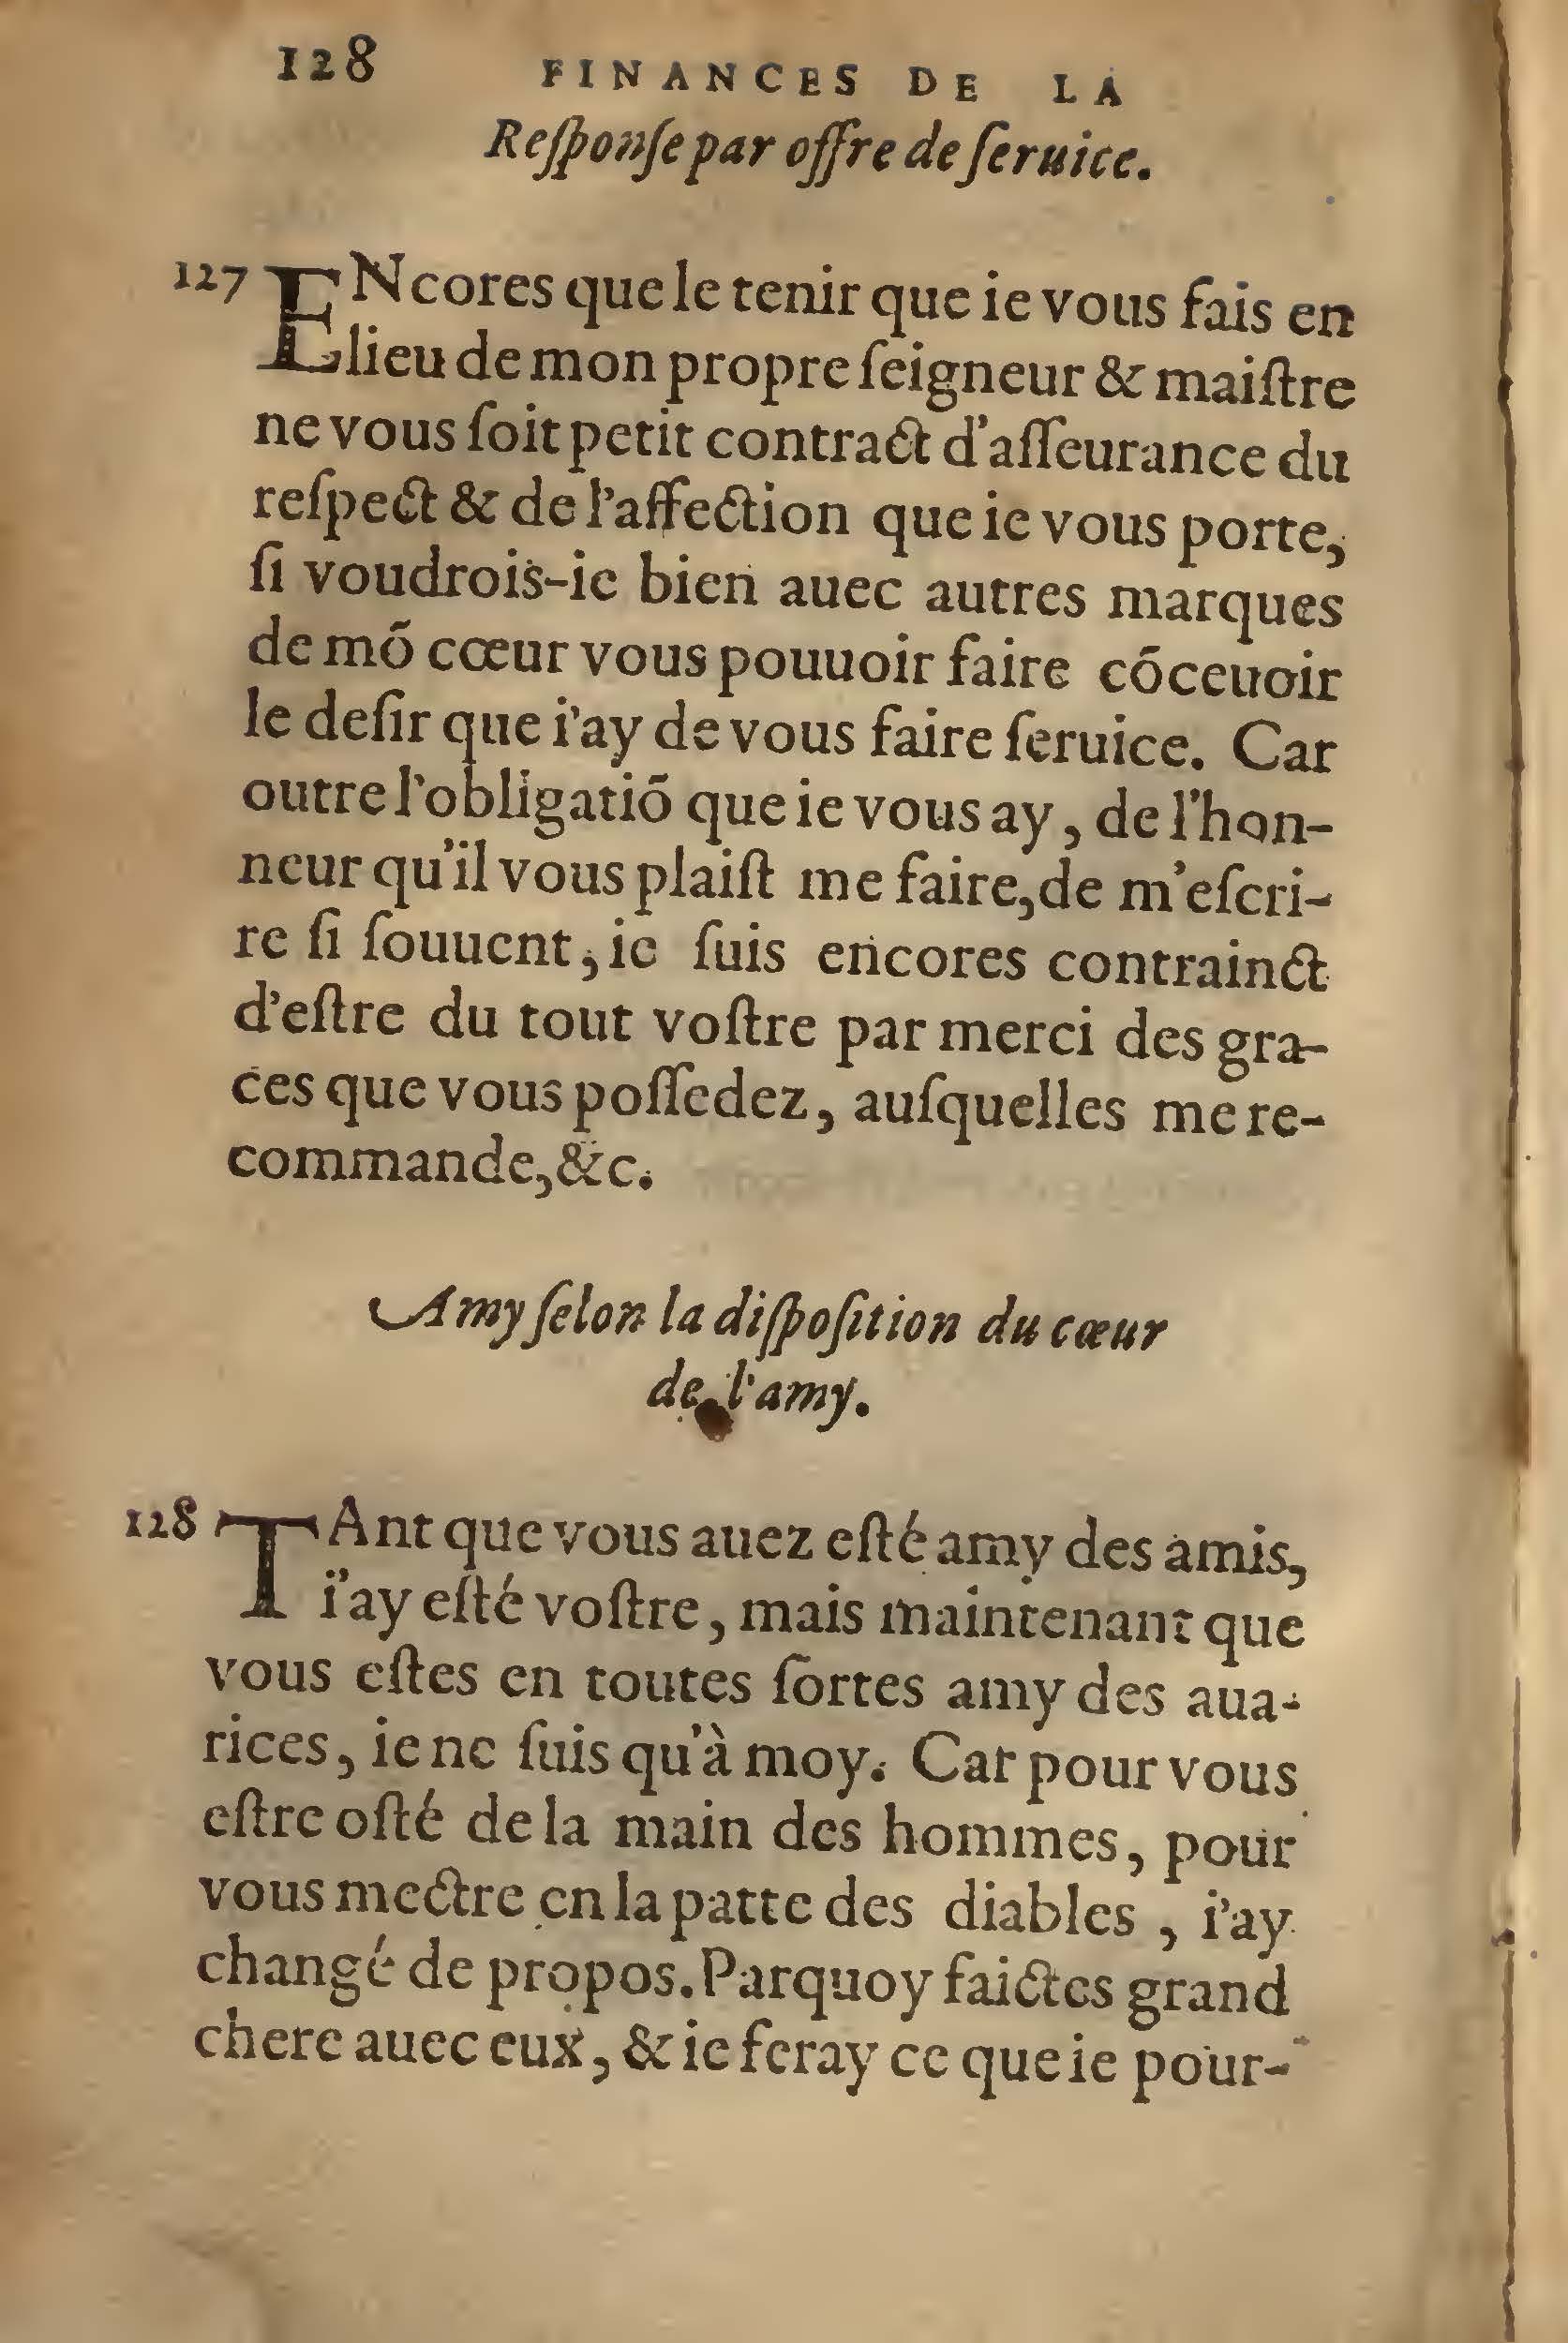 128 FINANCES DE LA
Reſponſe par offre de ſeruice.
127 ENcores que le tenir que ie vous fais en
lieu de mon propre ſeigneur & maiſtre
ne vous ſoit petit contract d'aſſeurance du
reſpect & de l'affection que ie vous porte,
ſi voudrois-ie bien auec autres marques
de mõ cœur vous pouuoir faire cõceuoir
le deſir que i'ay de vous faire ſeruice. Car
outre l'obligatiõ que ie vous ay, de l'hon-
neur qu'il vous plaiſt me faire, de m'eſcri-
re ſi ſouuent, ie ſuis encores contrainct
d'eſtre du tout voſtre par merci des gra-
ces que vous poſſedez, auſquelles me re-
commande, &c.
Amy ſelon la diſpoſition du cœur
de l'amy.
128 TAnt que vous auez eſté amy des amis,
i'ay eſté voſtre, mais maintenant que
vous eſtes en toutes ſortes amy des aua-
rices, ie ne ſuis qu'à moy. Car pour vous
eſtre oſté de la main des hommes, pour
vous mectre en la patte des diables, i'ay
changé de propos. Parquoy faictes grand
chere auec eux, & ie feray ce que ie pour-